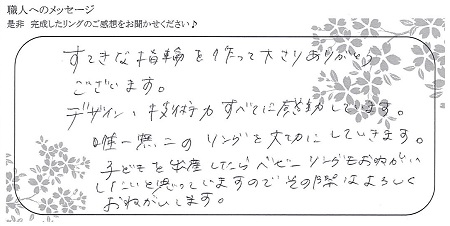 職人へのメッセージ
是非 完成したリングのご感想をお聞かせください♪
すてきな指輪を作って下さりありがとう
ございます。
デザイン、技術力すべてに感動しています。
唯一無二のリングを大切にしていきます。
子どもを出産したらベビーリングもおねがい
したいと思っていますのでその際はよろしく
おねがいします。